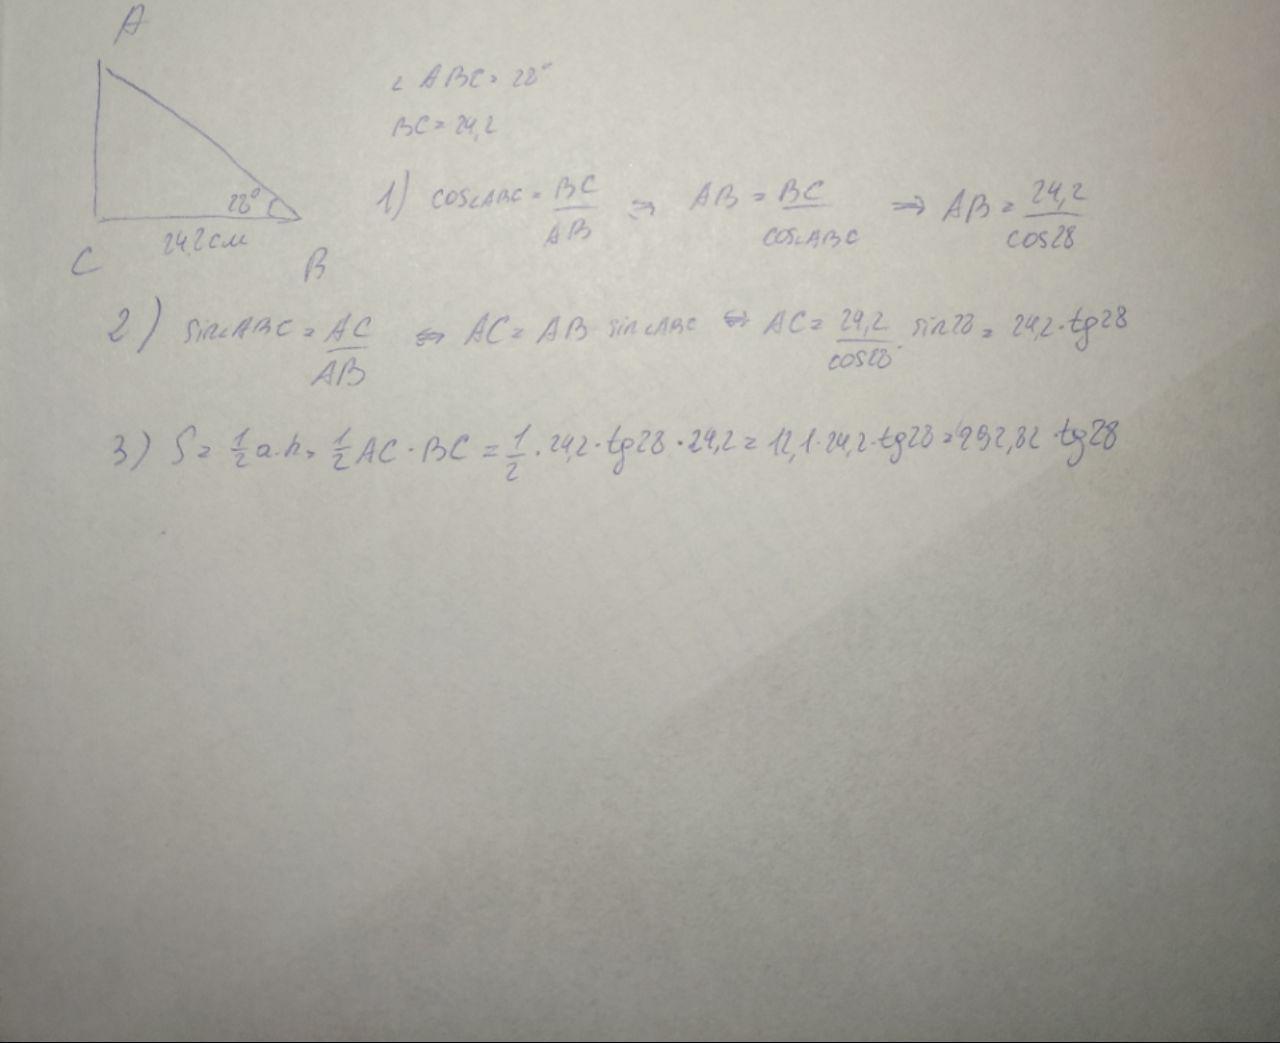 A
∠ ABC = 28°
BC = 24,2
28°
24,2 см
C
B
1) cos∠ABC = BC/AB ⇒ AB = BC/cos∠ABC ⇒ AB = 24,2/cos28
2) sin∠ABC = AC/AB ⇔ AC = AB sin∠ABC ⇔ AC = 24,2/cos28 · sin28 = 24,2 · tg28
3) S = 1/2 a·h = 1/2 AC · BC = 1/2 · 24,2 · tg28 · 24,2 = 12,1 · 24,2 · tg28 = 292,82 · tg28